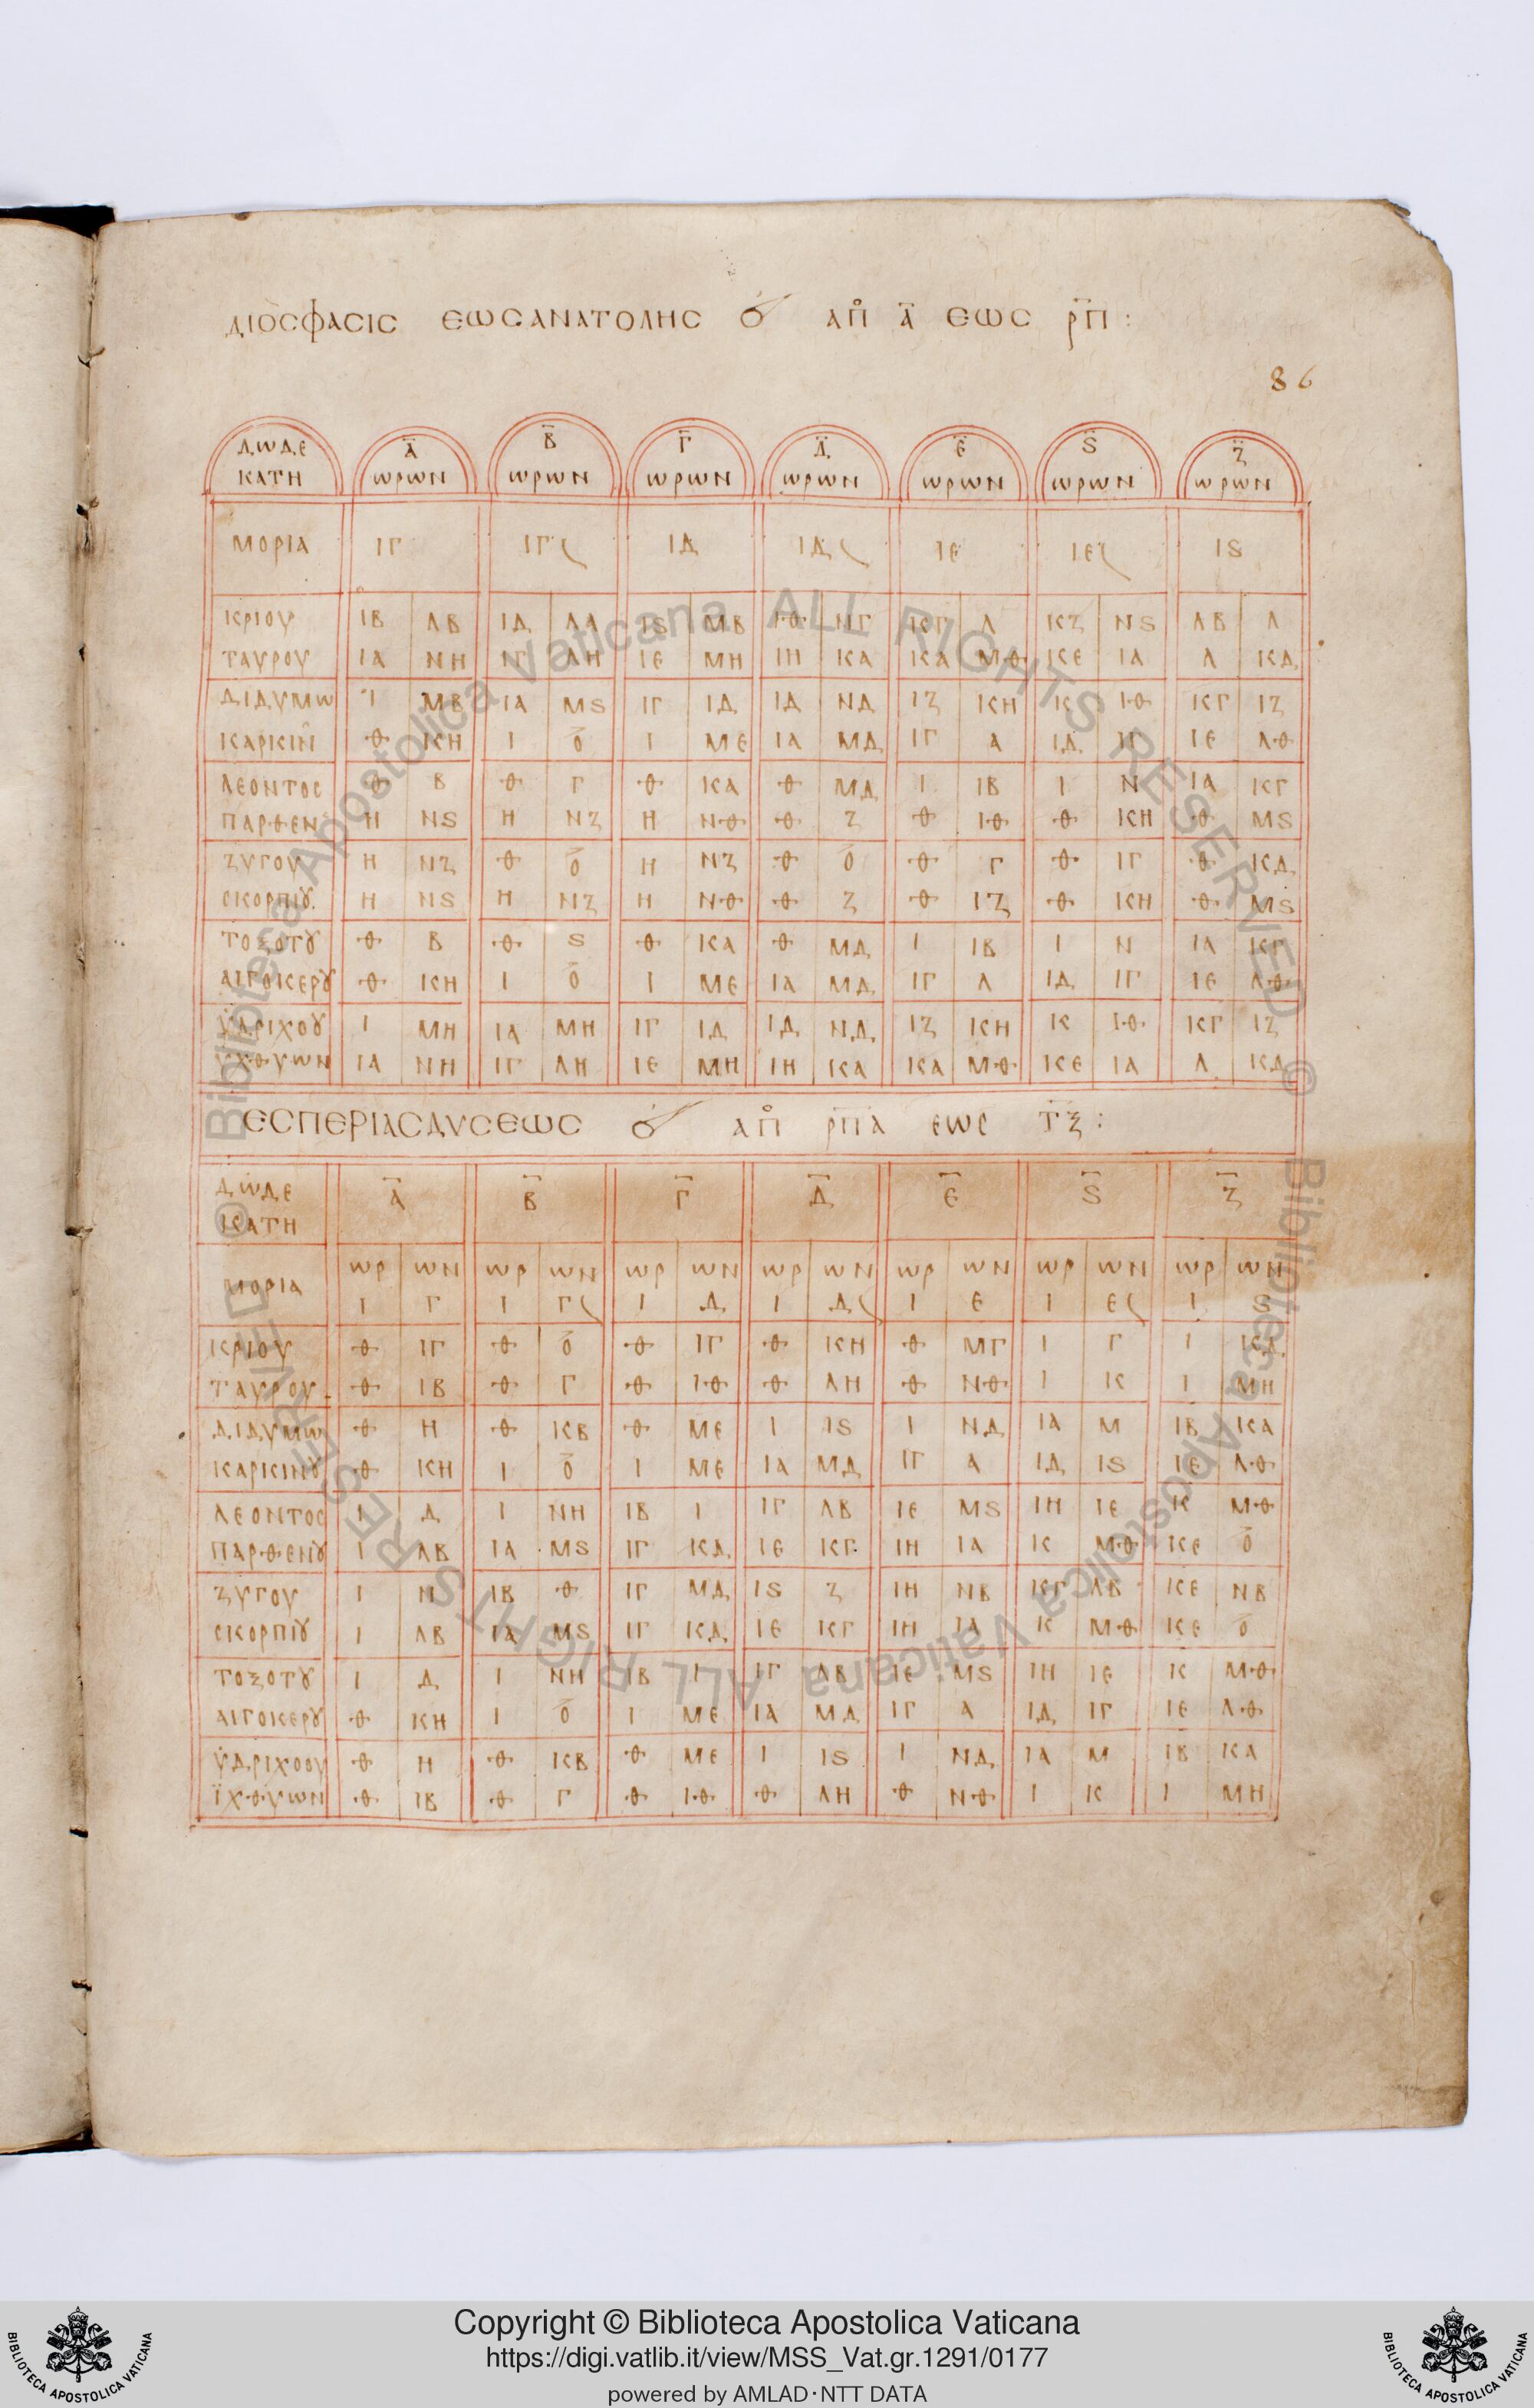 ΔΙΟC ΦΑCΙC ΕѠCΑΝΑΤΟΛΗC ΑΠ° Α̅ ΕѠC Ρ̅Π̅ :
86
ΔѠΔΕΚΑΤΗ Α̅ ѠΡѠΝ Β̅ ѠΡѠΝ Γ̅ ѠΡѠΝ Δ̅ ѠΡѠΝ Ε̅ ѠΡѠΝ Ϛ̅ ѠΡѠΝ Ζ̅ ѠΡѠΝ
ΜΟΡΙΑ ΙΓ ΙΓ( ΙΔ ΙΔ( ΙΕ ΙΕ( ΙϚ
ΚΡΙΟΥ ΙΒ ΛΒ ΙΔ ΛΑ ΙϚ ΜΒ ΙΘ ΝΓ ΚΓ Λ ΚΖ ΝϚ ΛΒ Λ
ΤΑΥΡΟΥ ΙΑ ΝΗ ΙΓ ΛΗ ΙΕ ΜΗ ΙΗ ΚΑ ΚΑ ΜΘ ΚΕ ΙΑ Λ ΚΔ
ΔΙΔΥΜѠ Ι ΜΒ ΙΑ ΜϚ ΙΓ ΙΔ ΙΔ ΝΔ ΙΖ ΚΗ Κ ΙΘ ΚΓ ΙΖ
ΚΑΡΚΙΝ Θ ΚΗ Ι Ο̅ Ι ΜΕ ΙΑ ΜΔ ΙΓ Α ΙΔ ΙΓ ΙΕ ΛΘ
ΛΕΟΝΤΟC Θ Β Θ Γ Θ ΚΑ Θ ΜΔ Ι ΙΒ Ι Ν ΙΑ ΚΓ
ΠΑΡΘΕΝ Η ΝϚ Η ΝΖ Η ΝΘ Θ Ζ Θ ΙΘ Θ ΚΗ Θ ΜϚ
ΖΥΓΟΥ Η ΝΖ Θ Ο̅ Η ΝΖ Θ Ο̅ Θ Γ Θ ΙΓ Θ ΚΔ
CΚΟΡΠΙȢ Η ΝϚ Η ΝΖ Η ΝΘ Θ Ζ Θ ΙΖ Θ ΚΗ Θ ΜϚ
ΤΟΞΟΤȢ Θ Β Θ Ϛ Θ ΚΑ Θ ΜΔ Ι ΙΒ Ι Ν ΙΑ ΚΓ
ΑΙΓΟΚΕΡȢ Θ ΚΗ Ι Ο̅ Ι ΜΕ ΙΑ ΜΔ ΙΓ Λ ΙΔ ΙΓ ΙΕ ΛΘ
ΫΔΡΙΧΟȢ Ι ΜΗ ΙΑ ΜΗ ΙΓ ΙΔ ΙΔ ΝΔ ΙΖ ΚΗ Κ ΙΘ ΚΓ ΙΖ
ΥΧΘΥѠΝ ΙΑ ΝΗ ΙΓ ΛΗ ΙΕ ΜΗ ΙΗ ΚΑ ΚΑ ΜΘ ΚΕ ΙΑ Λ ΚΔ
ΕCΠΕΡΙΑCΔΥCΕѠC ΑΠ° Ρ̅Π̅Α̅ ΕѠC Τ̅Ξ̅ :
ΔѠΔΕΚΑΤΗ Α̅ Β̅ Γ̅ Δ̅ Ε̅ Ϛ̅ Ζ̅
ΜΟΡΙΑ ѠΡ ѠΝ ѠΡ ѠΝ ѠΡ ѠΝ ѠΡ ѠΝ ѠΡ ѠΝ ѠΡ ѠΝ ѠΡ ѠΝ
Ι Γ Ι Γ( Ι Δ Ι Δ( Ι Ε Ι Ε( Ι Ϛ
ΚΡΙΟΥ Θ ΙΓ Θ Ο̅ Θ ΙΓ Θ ΚΗ Θ ΜΓ Ι Γ Ι ΚΔ
ΤΑΥΡΟΥ Θ ΙΒ Θ Γ Θ ΙΘ Θ ΛΗ Θ ΝΘ Ι Κ Ι ΜΗ
ΔΙΔΥΜѠ Θ Η Θ ΚΒ Θ ΜΕ Ι ΙϚ Ι ΝΔ ΙΑ Μ ΙΒ ΚΑ
ΚΑΡΚΙΝȢ Θ ΚΗ Ι Ο̅ Ι ΜΕ ΙΑ ΜΔ ΙΓ Α ΙΔ ΙϚ ΙΕ ΛΘ
ΛΕΟΝΤΟC Ι Δ Ι ΝΗ ΙΒ Ι ΙΓ ΛΒ ΙΕ ΜϚ ΙΗ ΙΕ Κ ΜΘ
ΠΑΡΘΕΝȢ Ι ΛΒ ΙΑ ΜϚ ΙΓ ΚΔ ΙΕ ΚΓ ΙΗ ΙΑ Κ ΜΘ ΚΕ Ο̅
ΖΥΓΟΥ Ι Ν ΙΒ Θ ΙΓ ΜΔ ΙϚ Ζ ΙΗ ΝΒ ΚΓ ΛΒ ΚΕ ΝΒ
CΚΟΡΠΙȢ Ι ΛΒ ΙΑ ΜϚ ΙΓ ΚΔ ΙΕ ΚΓ ΙΗ ΙΑ Κ ΜΘ ΚΕ Ο̅
ΤΟΞΟΤȢ Ι Δ Ι ΝΗ ΙΒ Ι ΙΓ ΛΒ ΙΕ ΜϚ ΙΗ ΙΕ Κ ΜΘ
ΑΙΓΟΚΕΡȢ Θ ΚΗ Ι Ο̅ Ι ΜΕ ΙΑ ΜΔ ΙΓ Α ΙΔ ΙΓ ΙΕ ΛΘ
ΫΔΡΙΧΟΟΥ Θ Η Θ ΚΒ Θ ΜΕ Ι ΙϚ Ι ΝΔ ΙΑ Μ ΙΒ ΚΑ
ΪΧΘΥѠΝ Θ ΙΒ Θ Γ Θ ΙΘ Θ ΛΗ Θ ΝΘ Ι Κ Ι ΜΗ
© Biblioteca Apostolica Vaticana ALL RIGHTS RESERVED
© Biblioteca Apostolica Vaticana ALL RIGHTS RESERVED
Copyright © Biblioteca Apostolica Vaticana
https://digi.vatlib.it/view/MSS_Vat.gr.1291/0177
powered by AMLAD·NTT DATA
BIBLIOTECA APOSTOLICA VATICANA
BIBLIOTECA APOSTOLICA VATICANA